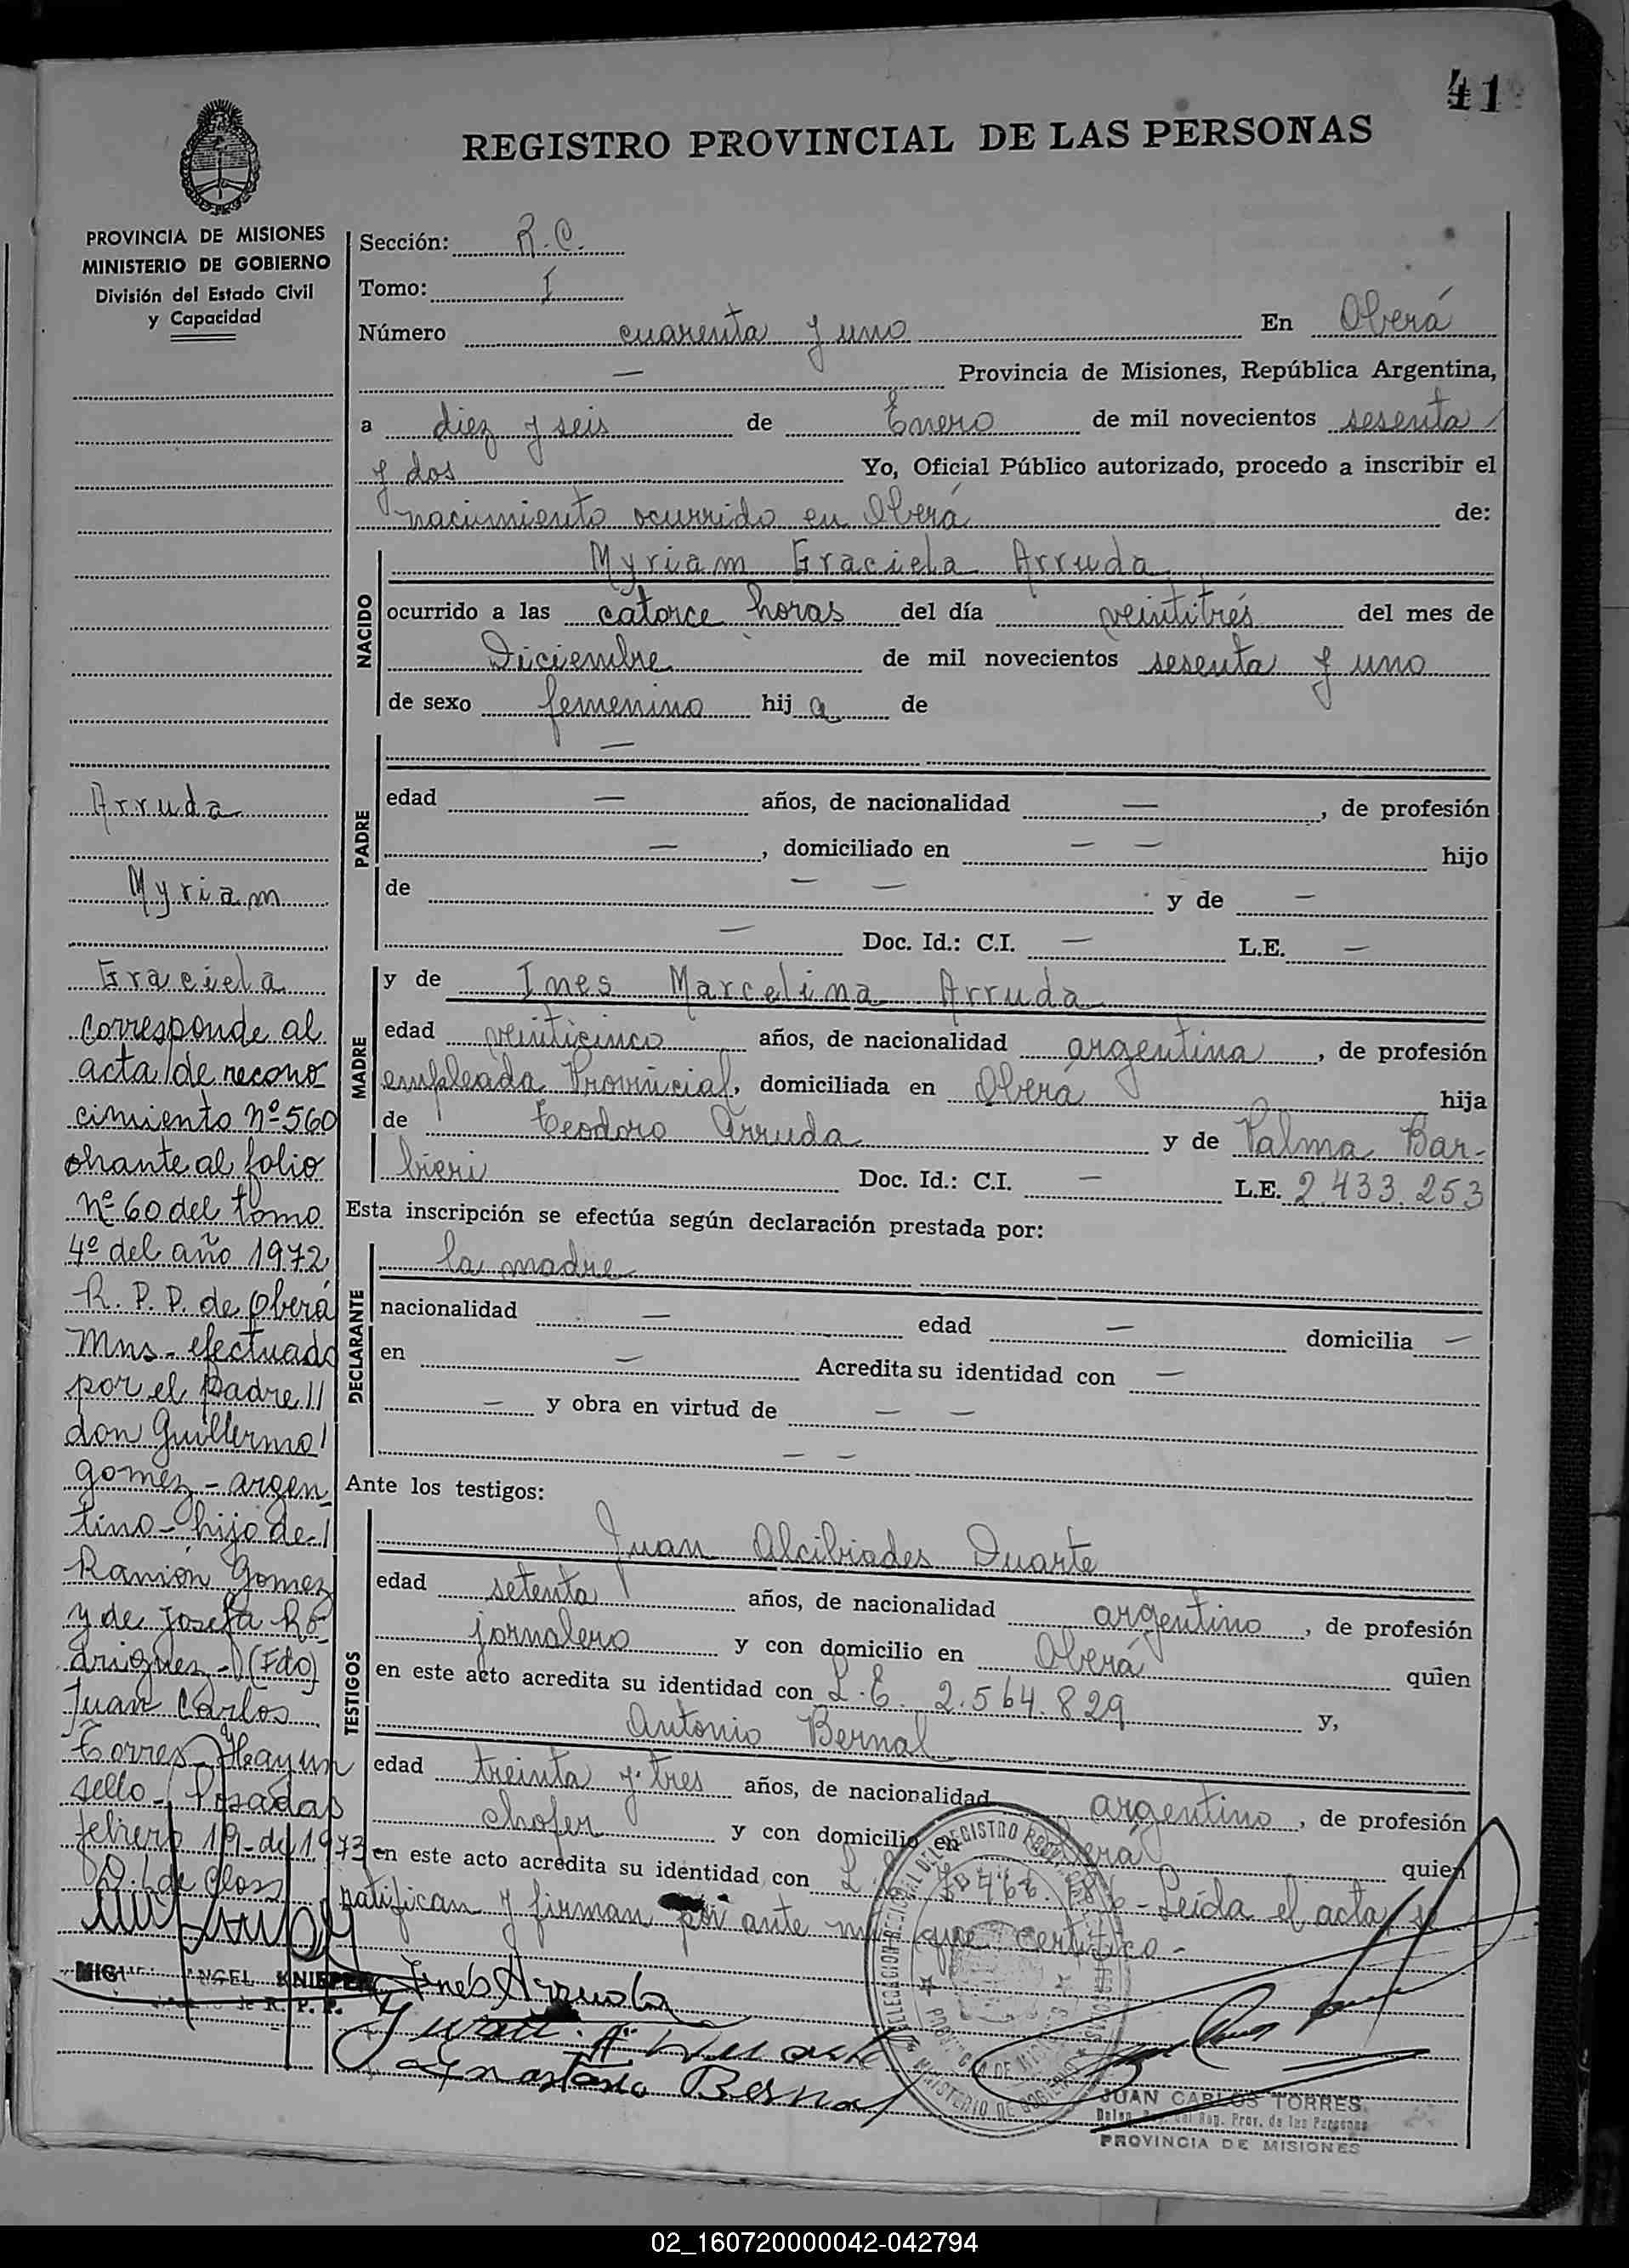 41
REGISTRO PROVINCIAL DE LAS PERSONAS
PROVINCIA DE MISIONES
MINISTERIO DE GOBIERNO
División del Estado Civil
y Capacidad
Arruda
Myriam
Graciela
Corresponde al
acta/de recono
cimiento Nº 560
obrante al folio
Nº 60 del tomo
4º del año 1972,
R. P. P. de Oberá
Mns - efectuado
por el padre //
don Guillermo/
gomez - argen
tino - hijo de /
Ramón Gomez
y de Josefa Ro-
driguez - (Fdo)
Juan Carlos
Torres - Hay un
sello - Posadas
febrero 19 - de 1973
KNIEPER
R. P. P.
Sección: R. C.
Tomo: I
Número cuarenta y uno En Oberá
— Provincia de Misiones, República Argentina,
a diez y seis de Enero de mil novecientos sesenta
y dos Yo, Oficial Público autorizado, procedo a inscribir el
nacimiento ocurrido en Oberá de:
NACIDO
Myriam Graciela Arruda
ocurrido a las catorce horas del día veintitrés del mes de
Diciembre de mil novecientos sesenta y uno
de sexo femenino hij a de
PADRE
—
edad — años, de nacionalidad —, de profesión
—, domiciliado en — — hijo
de — — y de —
— Doc. Id.: C.I. — L.E. —
MADRE
y de Ines Marcelina Arruda
edad veinticinco años, de nacionalidad argentina, de profesión
empleada Provincial, domiciliada en Oberá hija
de Teodoro Arruda y de Palma Bar-
bieri Doc. Id.: C.I. — L.E. 2.433.253
Esta inscripción se efectúa según declaración prestada por:
DECLARANTE
la madre
nacionalidad — edad — domicilia —
en — Acredita su identidad con —
— y obra en virtud de — —
— —
Ante los testigos:
TESTIGOS
Juan Alcibiades Duarte
edad setenta años, de nacionalidad argentino, de profesión
jornalero y con domicilio en Oberá quien
en este acto acredita su identidad con L.E. 2.564.829 y,
Antonio Bernal
edad treinta y tres años, de nacionalidad argentino, de profesión
chofer y con domicilio en Oberá quien
en este acto acredita su identidad con - Leída el acta, se
ratifican y firman por ante mí que certifico -
Inés Arruda
Juan A. Duarte
Anastasio Bernal
JUAN CARLOS TORRES
Reg. Prov. de las Personas
PROVINCIA DE MISIONES
02_160720000042-042794